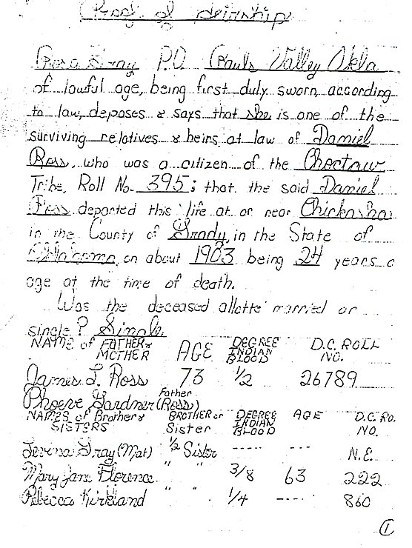 Proof of Heirship
Rosa Gray P.O. Pauls Valley Okla
of lawful age, being first duly sworn, according
to law, deposes & says that she is one of the
surviving relatives & heirs at law of Daniel
Ross, who was a citizen of the Choctaw
Tribe, Roll No. 395; that the said Daniel
Ross departed this life at or near Chickasha
in the County of Grady, in the State of
Oklahoma, on about 1903 being 24 years o
age at the time of death.
Was the deceased allotte married or
single? Single
NAME of FATHER & MOTHER AGE DEGREE INDIAN BLOOD D.C. ROLL NO.
James L. Ross 73 1/2 26789
Phoebe Gardner (Ross)
NAMES of Brother & SISTERS Father BROTHER or Sister DEGREE INDIAN BLOOD AGE D.C. RO. NO.
Gray (Mat) 1/2 Sister ----- ---- N.E.
Mary Jane Florence " " 3/8 63 222
Rebecca Kirkland " " 1/4 ---- 860
1